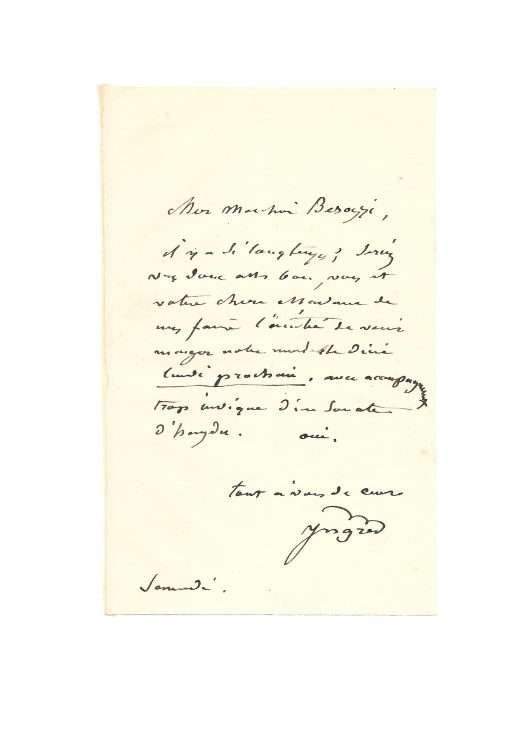 Mon Monsieur Besozzi,
il y a si longtemps; seriez
vous donc assez bon, vous et
votre chere Madame de
nous faire l'amitié de venir
manger notre modeste diné
lundi prochain, avec accompagnement
trop unique d'une Sonate
d'haydn. oui.
tout à vous de cœur
Ingres
Samedi.